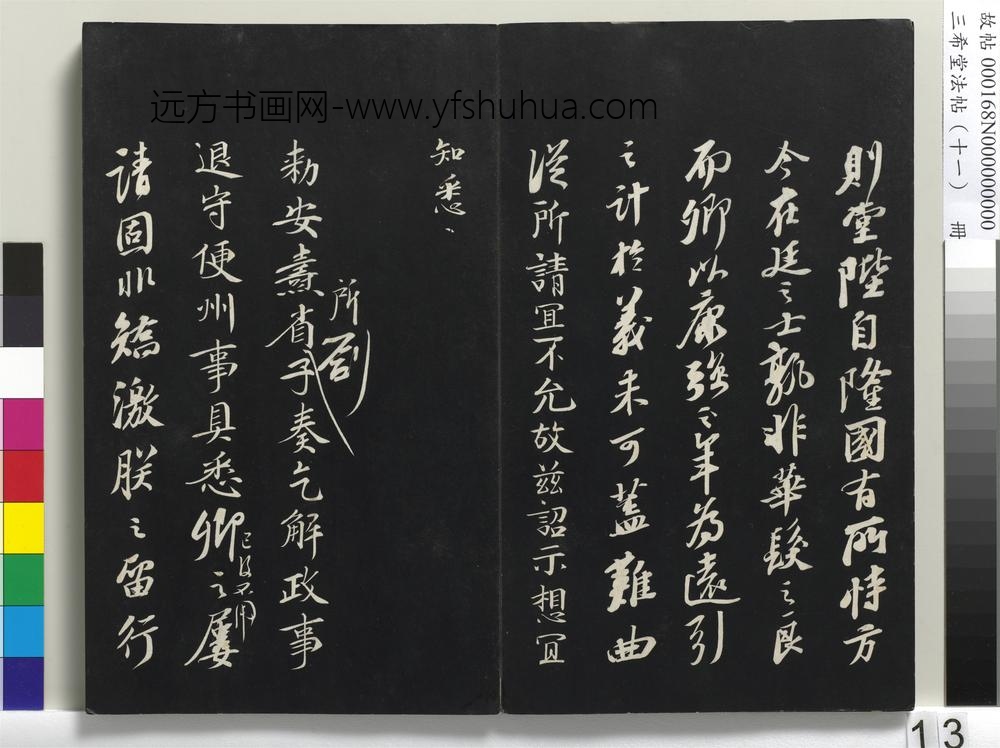 远方书画网-www.yfshuhua.com
故帖 000168N000000000
三希堂法帖（十一） 冊
則堂陛自隆國有所恃方
今在廷之士孰非華髮之良
而卿以康強之年為遠引
之計於義未可蓋難曲
從所請宜不允故茲詔示想宜
知悉
所劄
敕安燾省子奏乞解政事
退守便州事具悉卿之屢
請固非矯激朕之留行
13